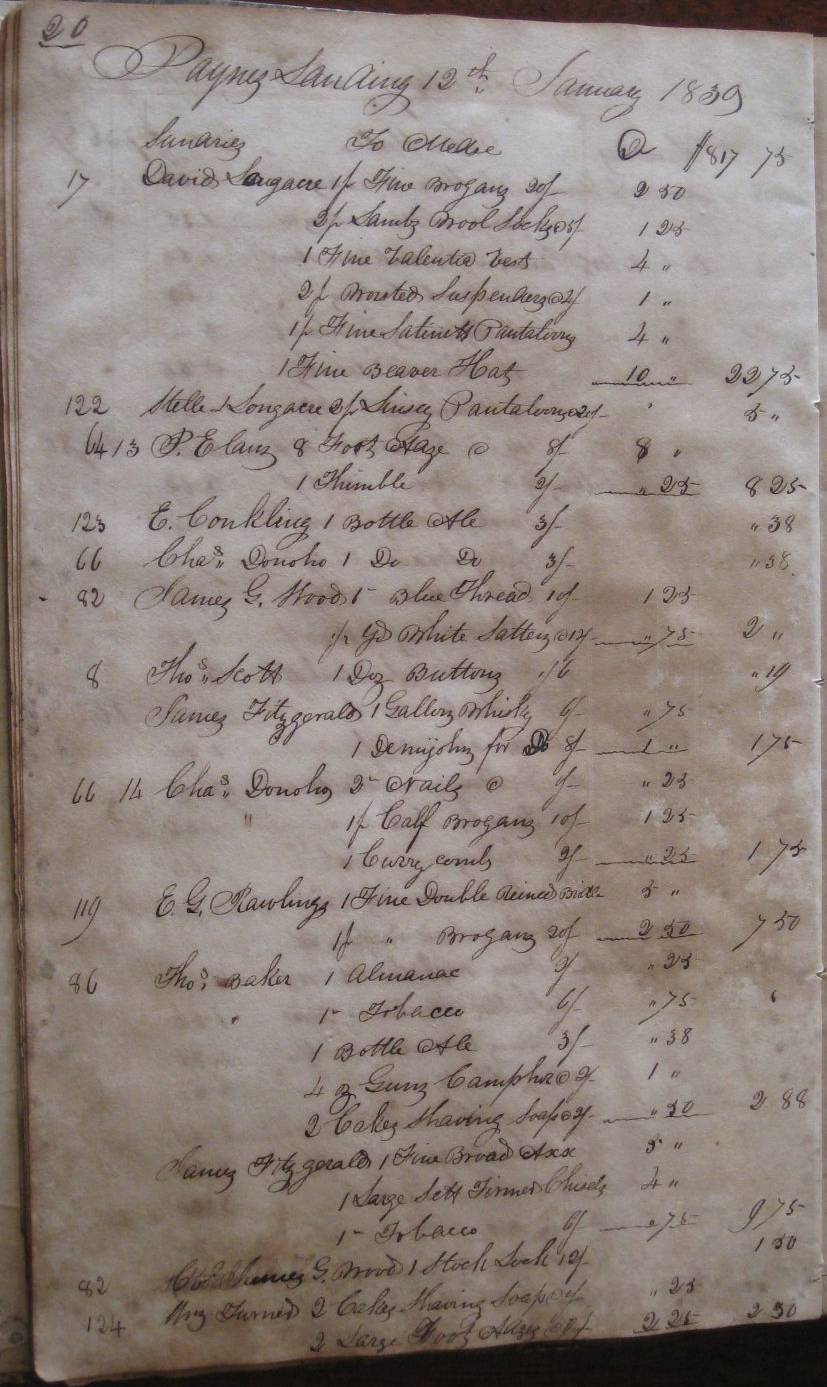 20
Paynes Landing 12th January 1839
Sundries To Mdse D $817 75
17 David Longacre 1 p Fine Brogans 20/ 2 50
2 p Lambs Wool Socks @ 5/ 1 25
1 Fine Valentia Vest 4 "
2 p Worsted Suspenders @ 2/ 1 "
1 p Fine Satinett Pantaloons 4 "
1 Fine Beaver Hat 10 " 22 75
122 Longacre 2 p Linsey Pantaloons @ 20/ 5 "
64 13 P. E 8 Foot Adze @ 8/ 8 "
1 Thimble 2/ " 25 8 25
123 E. Conkling 1 Bottle Ale 3/ " 38
66 Chas Donoho 1 Do Do 3/ " 38
82 James G. Wood 1 Blue Thread 10/ 1 25
1/2 Yd White Satten @ 12/ " 75 2 "
8 Thos Scott 1 Doz Buttons 1/6 " 19
James Fitzgerald 1 Gallon Whisky 6/ " 75
1 Demijohn for Do 8/ 1 " 1 75
66 14 Chas Donoho 2 Nails @ 1/ " 25
" 1 p Calf Brogans 10/ 1 25
1 Curry comb 2/ " 25 1 75
119 E. G. Rawlings 1 Fine Double Reined Bridle 5 "
1 p " Brogans 20/ 2 50 7 50
86 Thos Baker 1 Almanac 2/ " 25
" 1 Tobacco 6/ " 75
1 Bottle Ale 3/ " 38
4 oz Gum Camphor @ 2/ 1 "
2 Cakes Shaving Soap @ 2/ " 50 2 88
James Fitzgerald 1 Fine Broad Axx 5 "
1 Large Sett Firmer Chisels 4 "
1 Tobacco 6/ " 75 9 75
82 James G. Wood 1 Stock Lock 12/ 1 50
124 Turner 2 Cakes Shaving Soap @ 1/ " 25
2 Large Foot Adzes @ 9/ 2 25 2 50